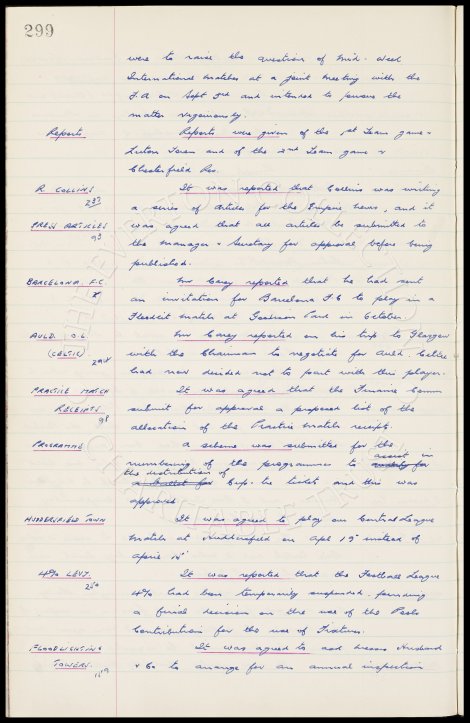 299
were to raise the question of Mid-Week
International Matches at a joint meeting with the
F.A on Sept 3rd and intended to pursue the
matter vigorously.
Reports
Reports were given of the 1st Team game v
Luton Town and of the 2nd Team game v
Chesterfield Res.
R. COLLINS
It was reported that Collins was writing
a series of Articles for the Empire News, and it
PRESS ARTICLES
was agreed that all articles be submitted to
the Manager & Secretary for approval before being
published.
BARCELONA F.C.
Mr Carey reported that he had sent
an invitation for Barcelona F.C to play in a
Floodlit Match at Goodison Park in October.
AULD. O.L
Mr Carey reported on his trip to Glasgow
(CELTIC)
with the Chairman to negotiate for Auld. Celtic
had now decided not to part with this player.
PRACTICE MATCH
It was agreed that the Finance Comm
RECEIPTS
submit for approval a proposed list of the
98
allocation of the Practice Match receipts.
PROGRAMME
A scheme was submitted for the
numbering of the programmes to assist in
the distribution of
Cup-tie tickets and this was
approved.
HUDDERSFIELD TOWN
It was agreed to play our Central League
Match at Huddersfield on Apl 19 instead of
April 18
4% LEVY.
It was reported that the Football League
4% had been temporarily suspended, pending
a final decision on the use of the Pools
Contribution for the use of Fixtures.
FLOODLIGHTING
It was agreed to ask Messrs Husband
TOWERS.
& Co to arrange for an annual inspection